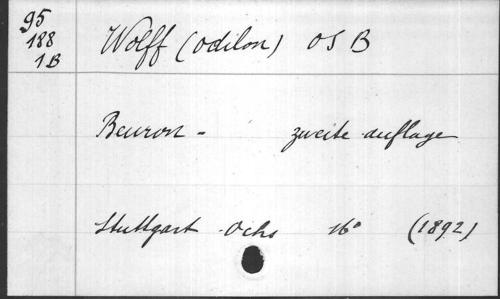 95
188
1B
Wolff (Odilon) OSB
Beuron - zweite auflage
Stuttgart Ochs 16° (1892)